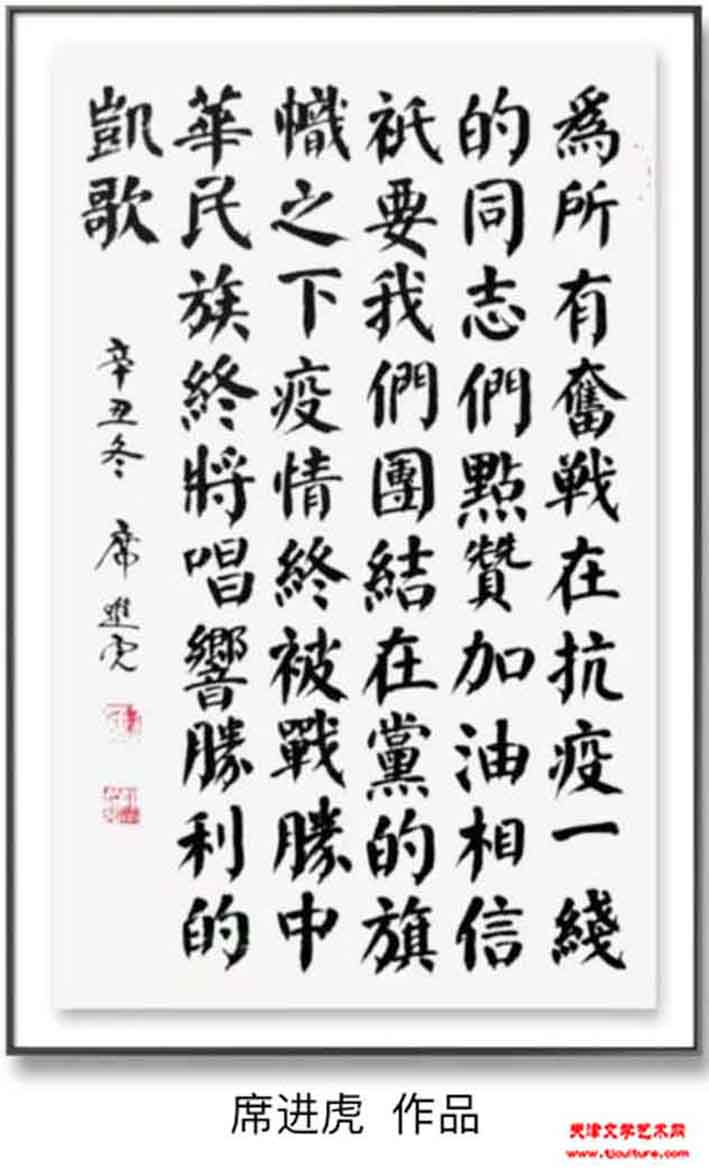 為所有奮戦在抗疫一綫
的同志們點贊加油相信
祇要我們團結在黨的旗
幟之下疫情終被戰勝中
華民族終將唱響勝利的
凱歌
辛丑冬 席進虎
席进虎 作品
天津文学艺术网
www.tjculture.com